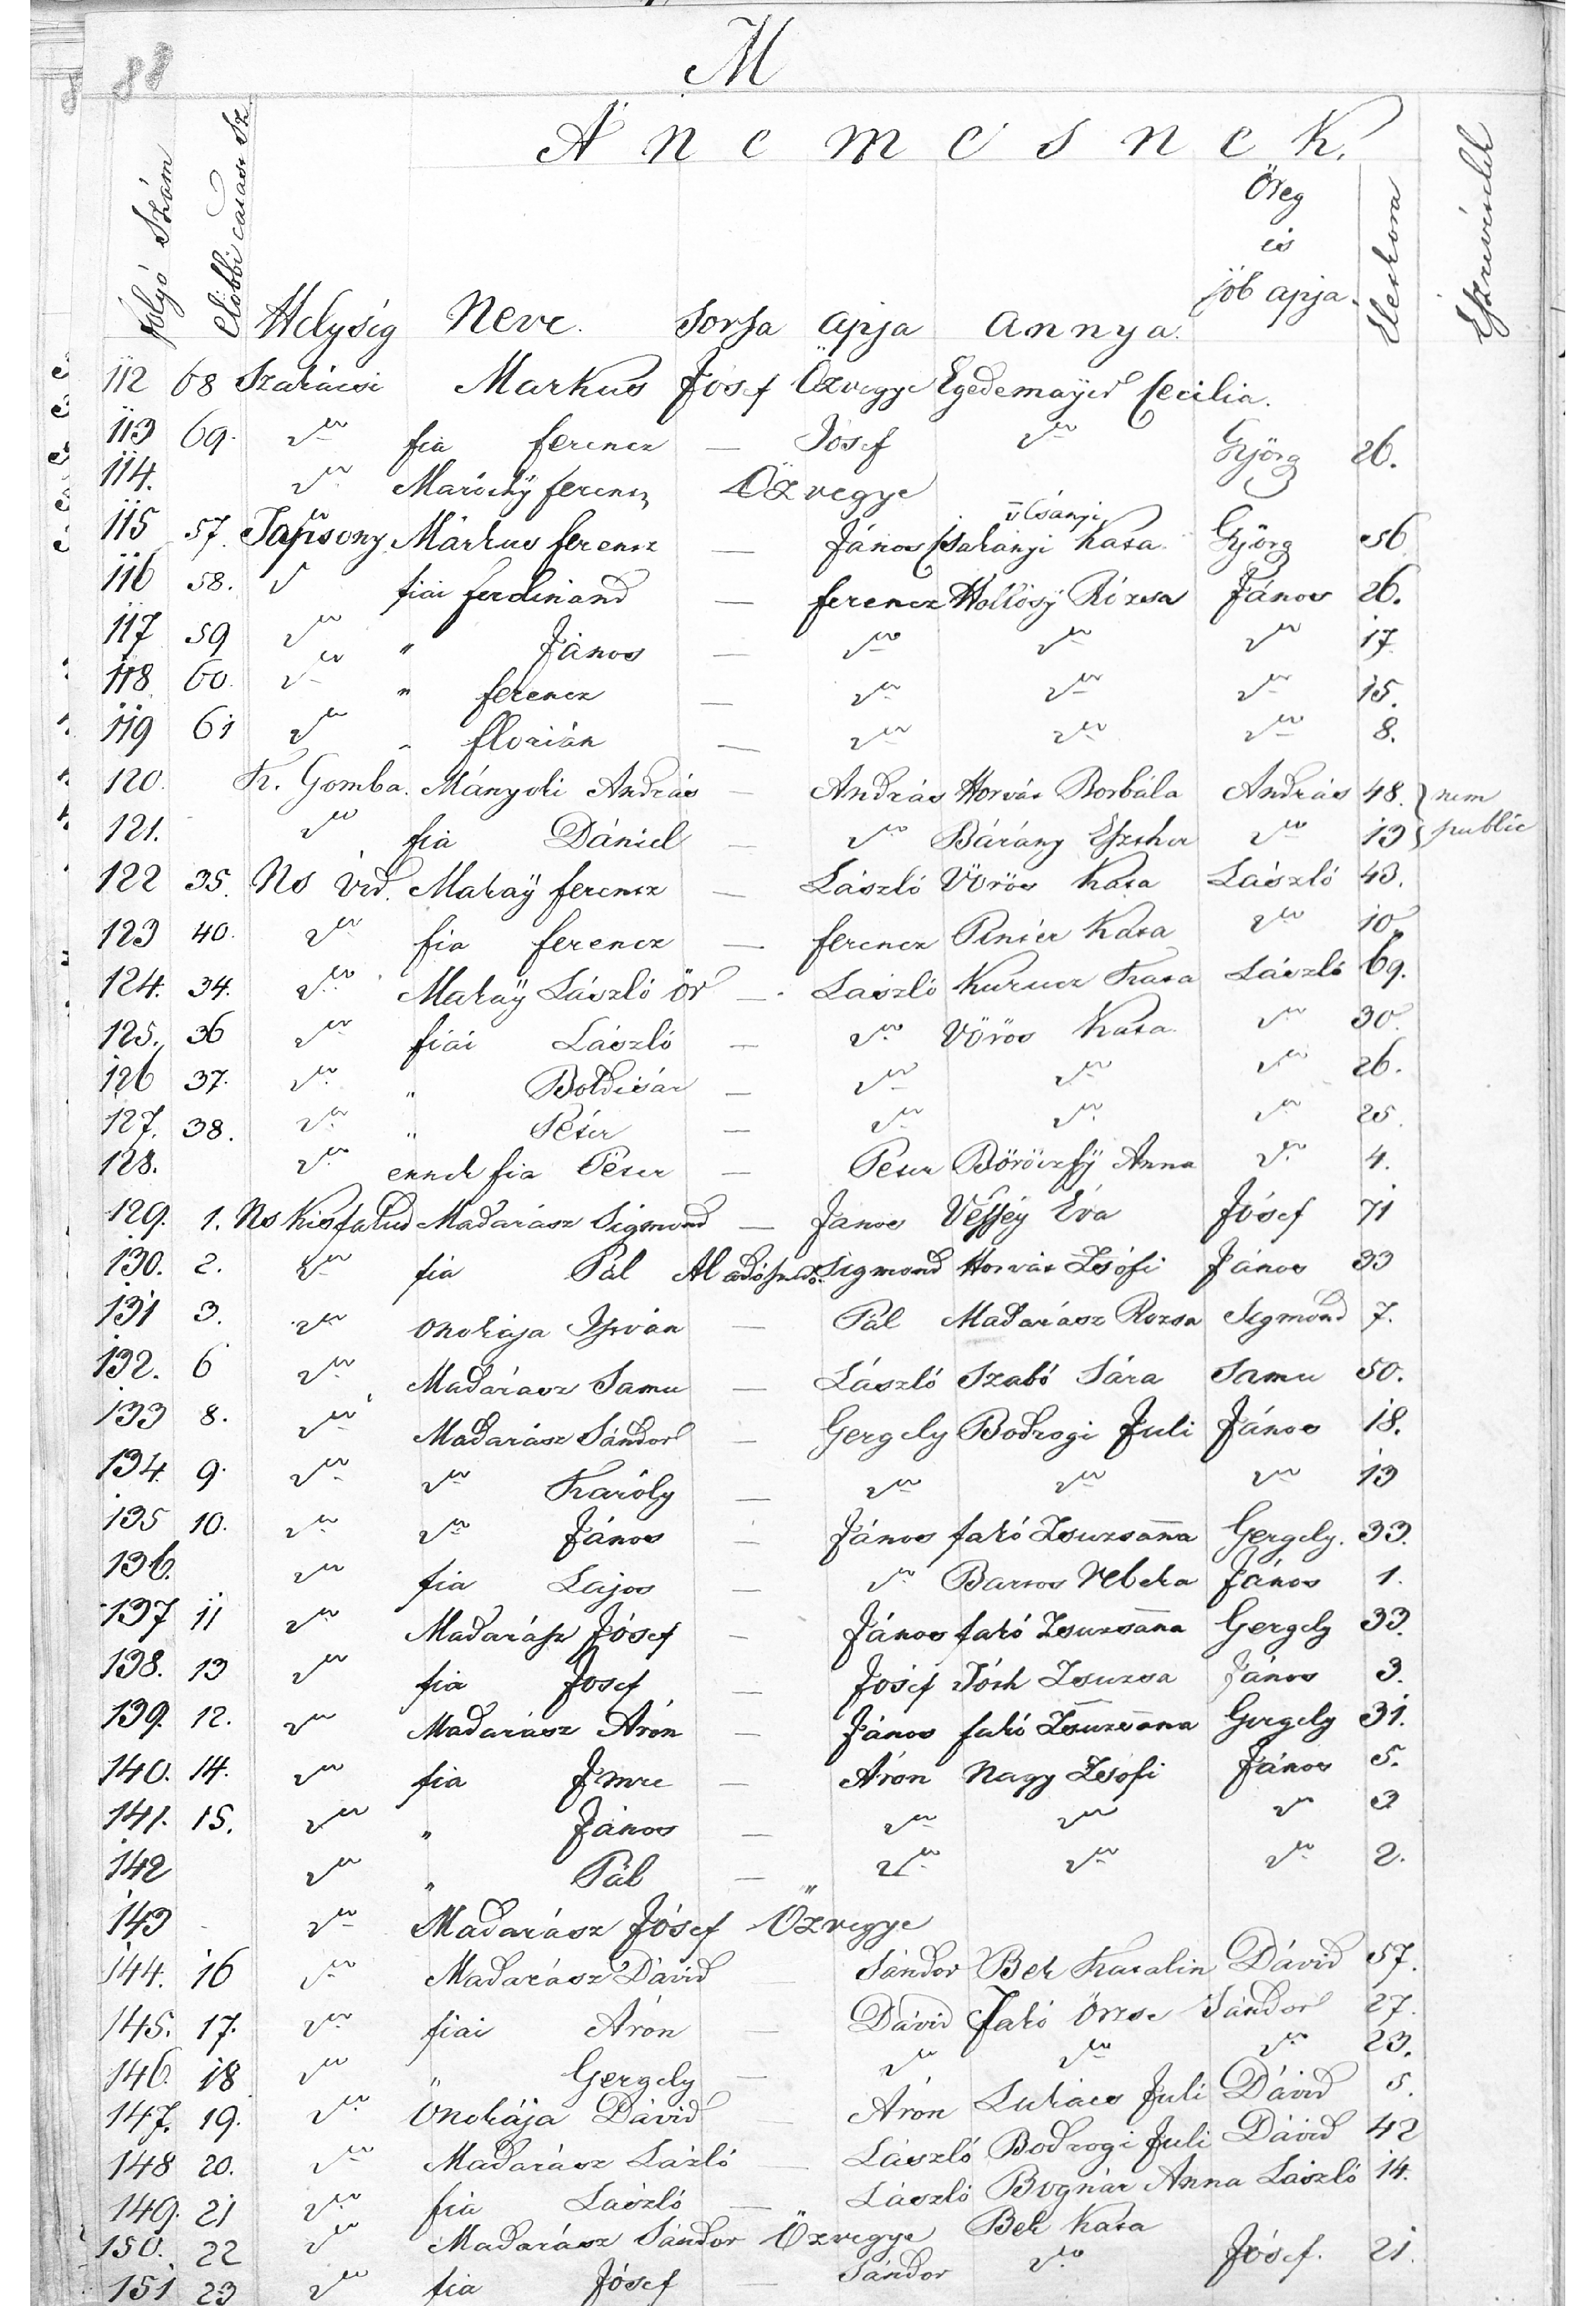 88
M
A nemesnek.
folyó Szám
előbbi
Helység Neve. Sorsa apja annya.
Öreg
és
jób apja
Életkora
Észrevételek
112 68 Szakácsi Markus Jósef Özvegye Egedemayer Cecilia.
113 69. dto fia ferencz — Jósef dto Györg 26.
114. dto Maróthÿ ferencz Özvegye
v Csányi
115 57. Tapsony Márkus ferencz — János Csakányi Kata Györg 56
116 58. d fiai ferdinand — ferencz Hollósÿ Rózsa János 26.
117 59 dto " János — dto dto dto 17
118 60. dto " ferencz — dto dto dto 15.
119 61 dto " florián — dto dto dto 8.
120. K. Gomba. Mányoki András — András Horvát Borbála András 48. } nem
121. dto fia Dániel — dto Bárány Eszther dto 13 } public
122 35. Ns Vid. Makaÿ ferencz — László Vörös Kata László 43.
123 40. dto fia ferencz — ferencz Pintér Kata dto 10
124. 34. dto Makaÿ László ör — László Kurucz Kata László 69.
125. 36 dto fiái László — dto Vörös Kata dto 30
126 37. dto " Boldisár — dto dto dto 26.
127. 38. dto " Péter — dto dto dto 25
128. dto ennek fia Péter — Peter Böröczfÿ Anna dto 4.
129. 1. Ns Kisfalud Madarász Sigmond — Janos Véssey Éva Jósef 71
130. 2. dto fia Pál Sigmond Horvát Zsófi János 33
131 3. dto Onokája István — Pál Madarász Rozsa Sigmond 7.
132. 6 dto Madárasz Samu — László Szabó Sára Samu 50.
133 8. dto Madarász Sándor — Gergely Bodrogi Juli János 18.
134 9. dto dto Károly — dto dto dto 13
135 10. dto dto János — János fakó Zsuzsanna Gergely. 33.
136. dto fia Lajos — dto Bartos Rebeka János 1.
137 11 dto Madarász Jósef — János fakó Zsuzsanna Gergely 33.
138. 13 dto fia Josef — Jósef Tóth Zsuzsa János 3.
139. 12. dto Madarász Áron — János fakó Zsuzsanna Gergely 31.
140. 14. dto fia Imre — Áron Nagy Zsófi János 5.
141. 15. dto " János — dto dto dto 3
142 dto " Pál — dto dto dto 2.
143 dto Madarász Jósef Özvegye
144. 16 dto Madarász Dávid Sándor Bek Katalin Dávid 57.
145. 17. dto fiai Áron — Dávid Jakó Örzse Sándor 27.
146. 18 dto " Gergely — dto dto dto 23.
147. 19. dto Onokája Dávid — Áron Lukács Juli Dávid 5.
148 20. dto Madarász Lázló — László Bodrogi Juli Dávid 42
149. 21 dto fia László — László Bognár Anna László 14.
150. 22 d Madarász Sándor Özvegye Bek Kata
151 23 dto fia Jósef — Sándor dto Jósef. 21.